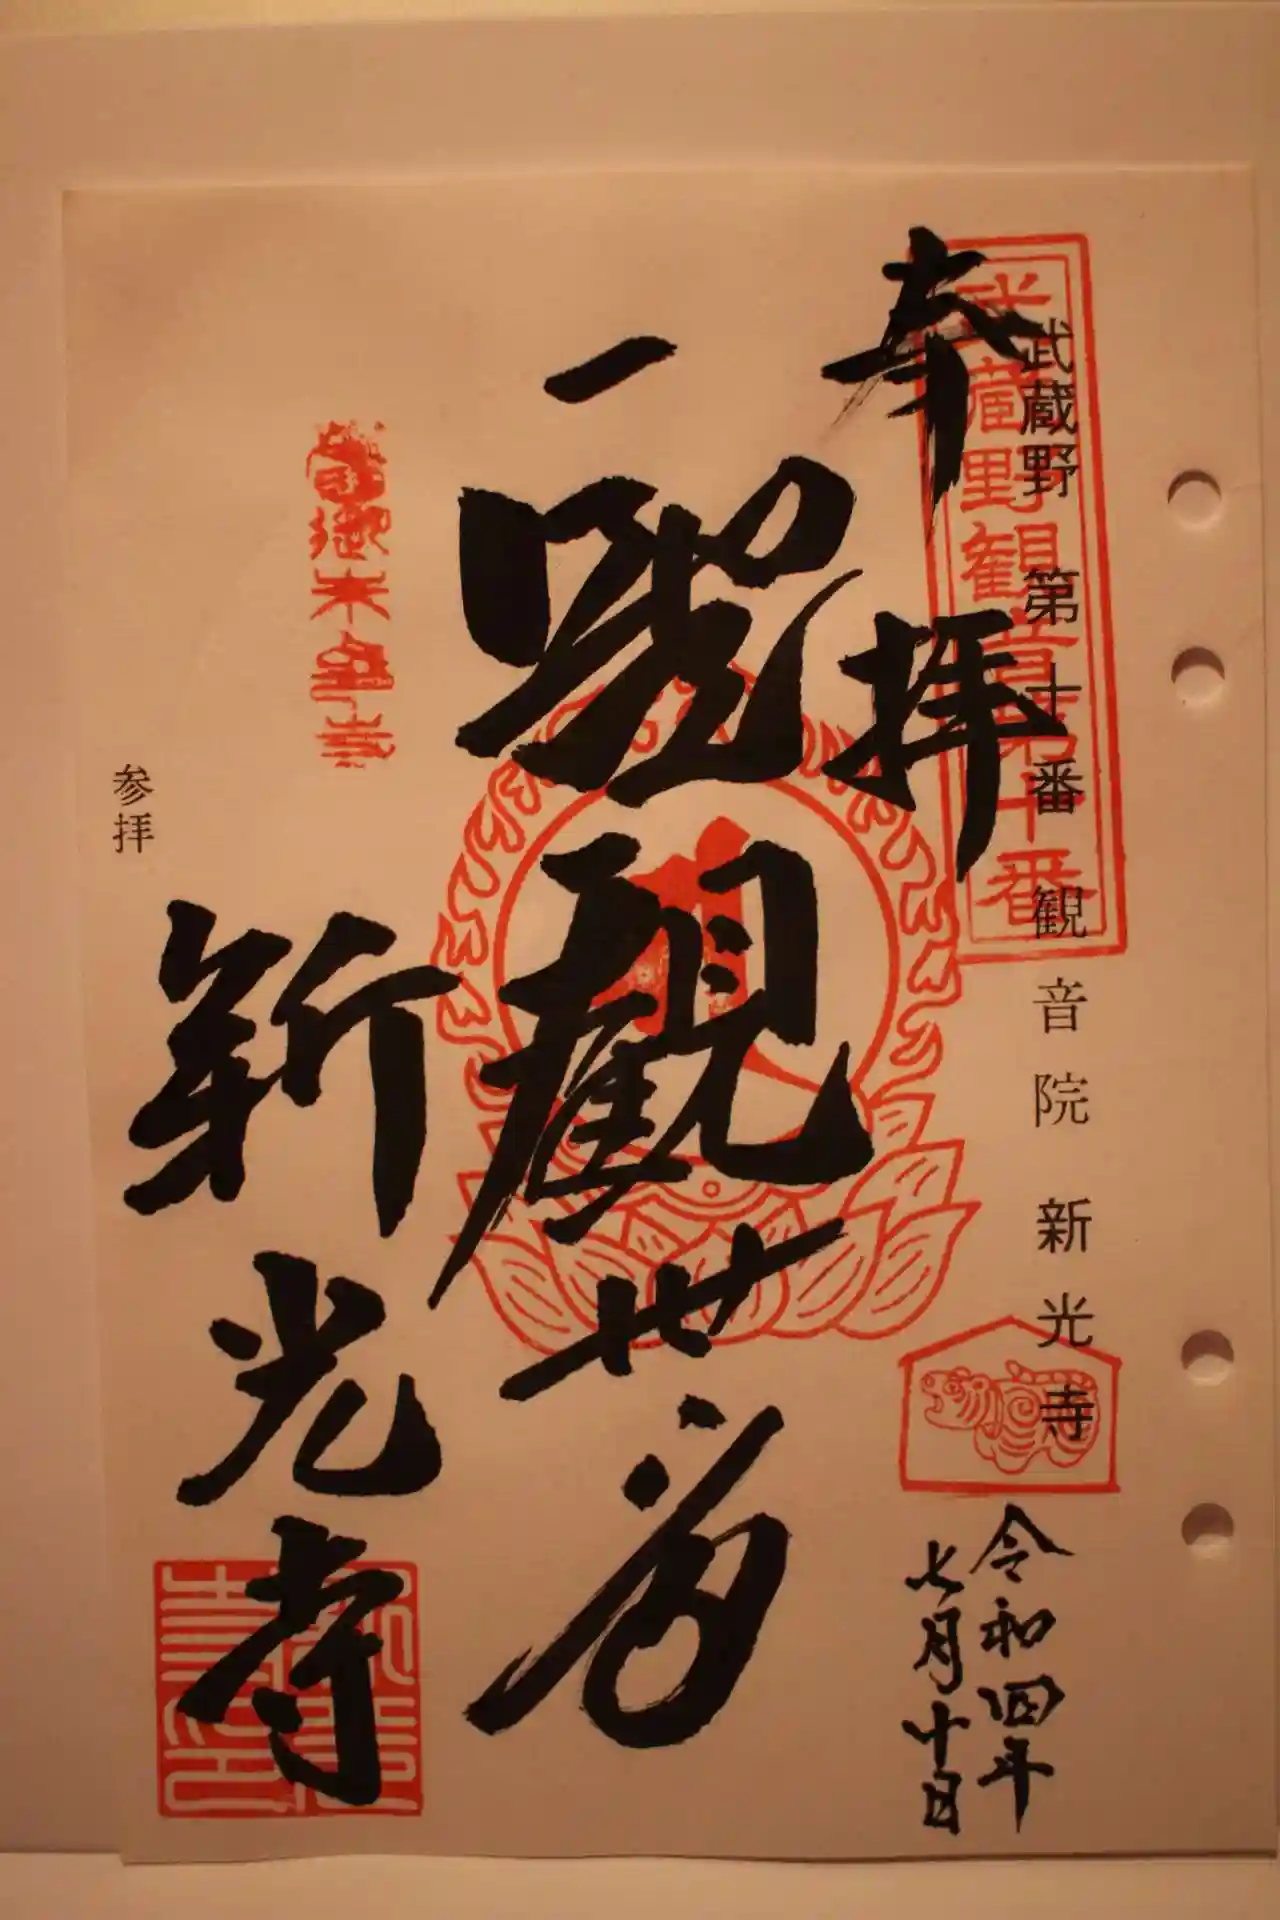 武蔵野 第十番 観音院 新光寺
武蔵野観音第十番
奉拝
令和四年
七月十日
一聖觀世音
新光寺
参拝